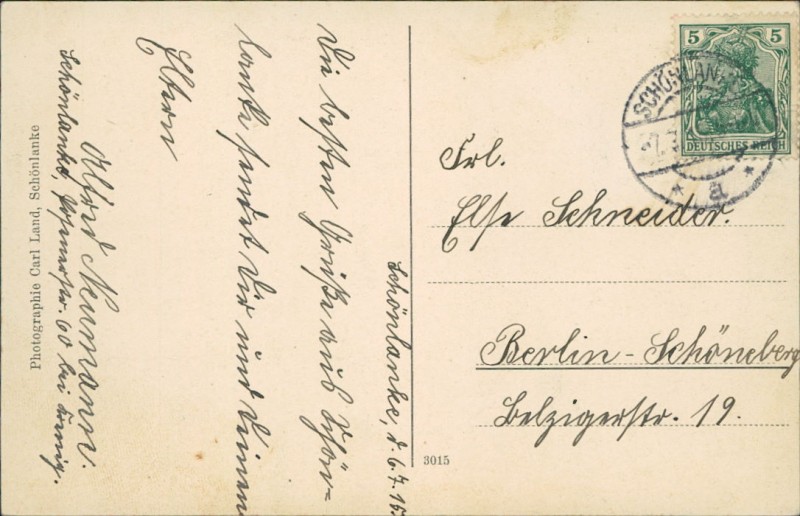 Schönlanke, d. 6.7.15.
Die besten Grüße aus Schön-
lanke sendet Dir und Deinen
Eltern
Alfred Neumann.
Schönlanke, Posenerstr. 60 bei König.
Photographie Carl Land, Schönlanke
3015
5 5
DEUTSCHES REICH
SCHÖNLAN
a
Frl.
Else Schneider.
Berlin-Schöneberg
Belzigerstr. 19.